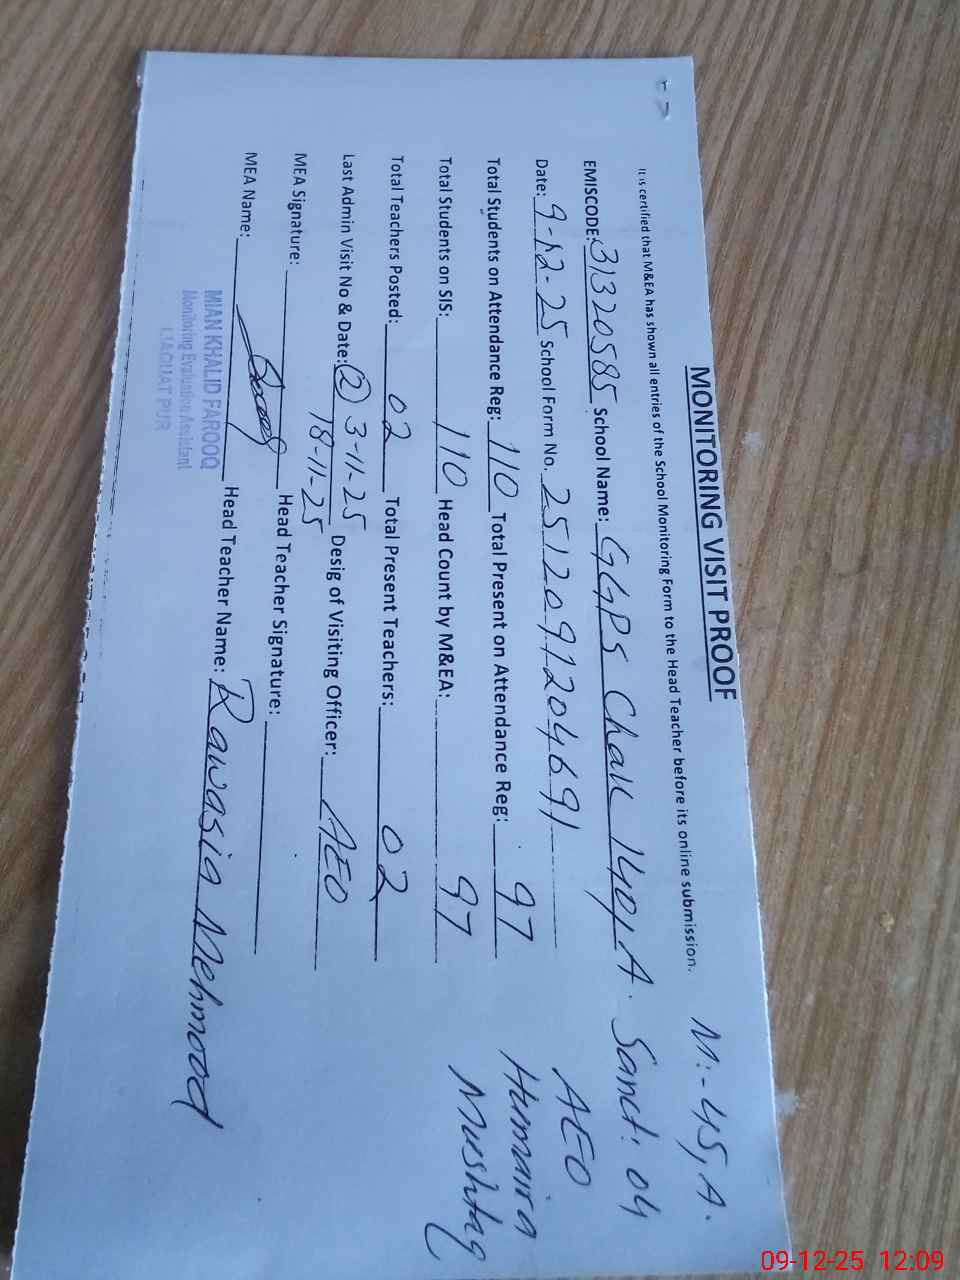 M:- 45, A.
MONITORING VISIT PROOF
It is certified that M&EA has shown all entries of the School Monitoring Form to the Head Teacher before its online submission.
EMISCODE: 31320585 School Name: GGPS Chak 140, A. Sanct: 04
Date: 9-12-25 School Form No. 2512091204691 AEO
Total Students on Attendance Reg: 110 Total Present on Attendance Reg: 97 Humaira
Total Students on SIS: 110 Head Count by M&EA: 97 Mushtaq
Total Teachers Posted: 02 Total Present Teachers: 02
Last Admin Visit No & Date: (2) 3-11-25 Desig of Visiting Officer: AEO
18-11-25
MEA Signature: Head Teacher Signature:
MEA Name: Head Teacher Name: Rawasia Mehmood
MIAN KHALID FAROOQ
Monitoring Evaluation Assistant
LIAQUAT PUR
09-12-25 12:09